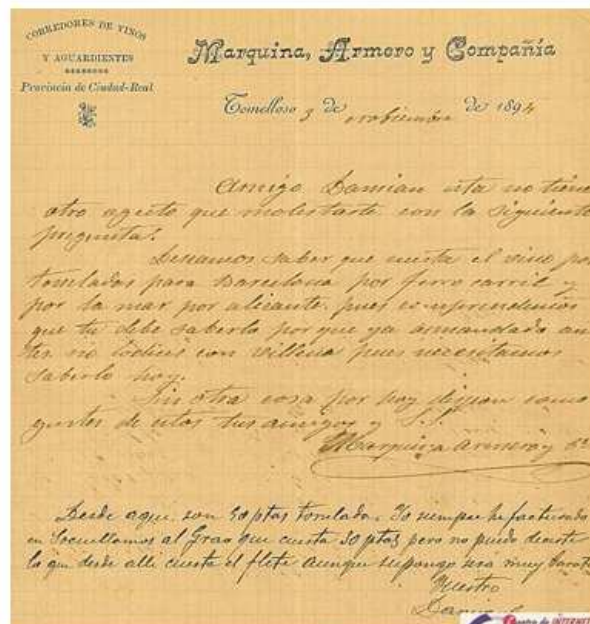 CORREDORES DE VINOS
Y AGUARDIENTES
Provincia de Ciudad-Real
Marquina, Armero y Compañía
Tomelloso 3 de novbiembre de 1894
Amigo Damian esta no tiene
otro ageto que molestarte con la siguiente
pregunta:
Deseamos saber que cuesta el vino por
toneladas para Barcelona por ferro carril y
por la mar por alicante. pues comprendemos
que tu debe saberlo por que ya
no pues necesitamos
saberlo hoy.
Sin otra cosa por hoy dispon como
gustes de estos tus amigos y S.S.
Marquina Armero y Cª
Desde aqui son 50 ptas tonelada. Yo siempre he facturado
en Socuellamos al Grao que cuesta 30 ptas pero no puedo decirte
lo que desde alli cuesta el flete aunque supongo sera muy barato
Vuestro
Damian
INTERNET